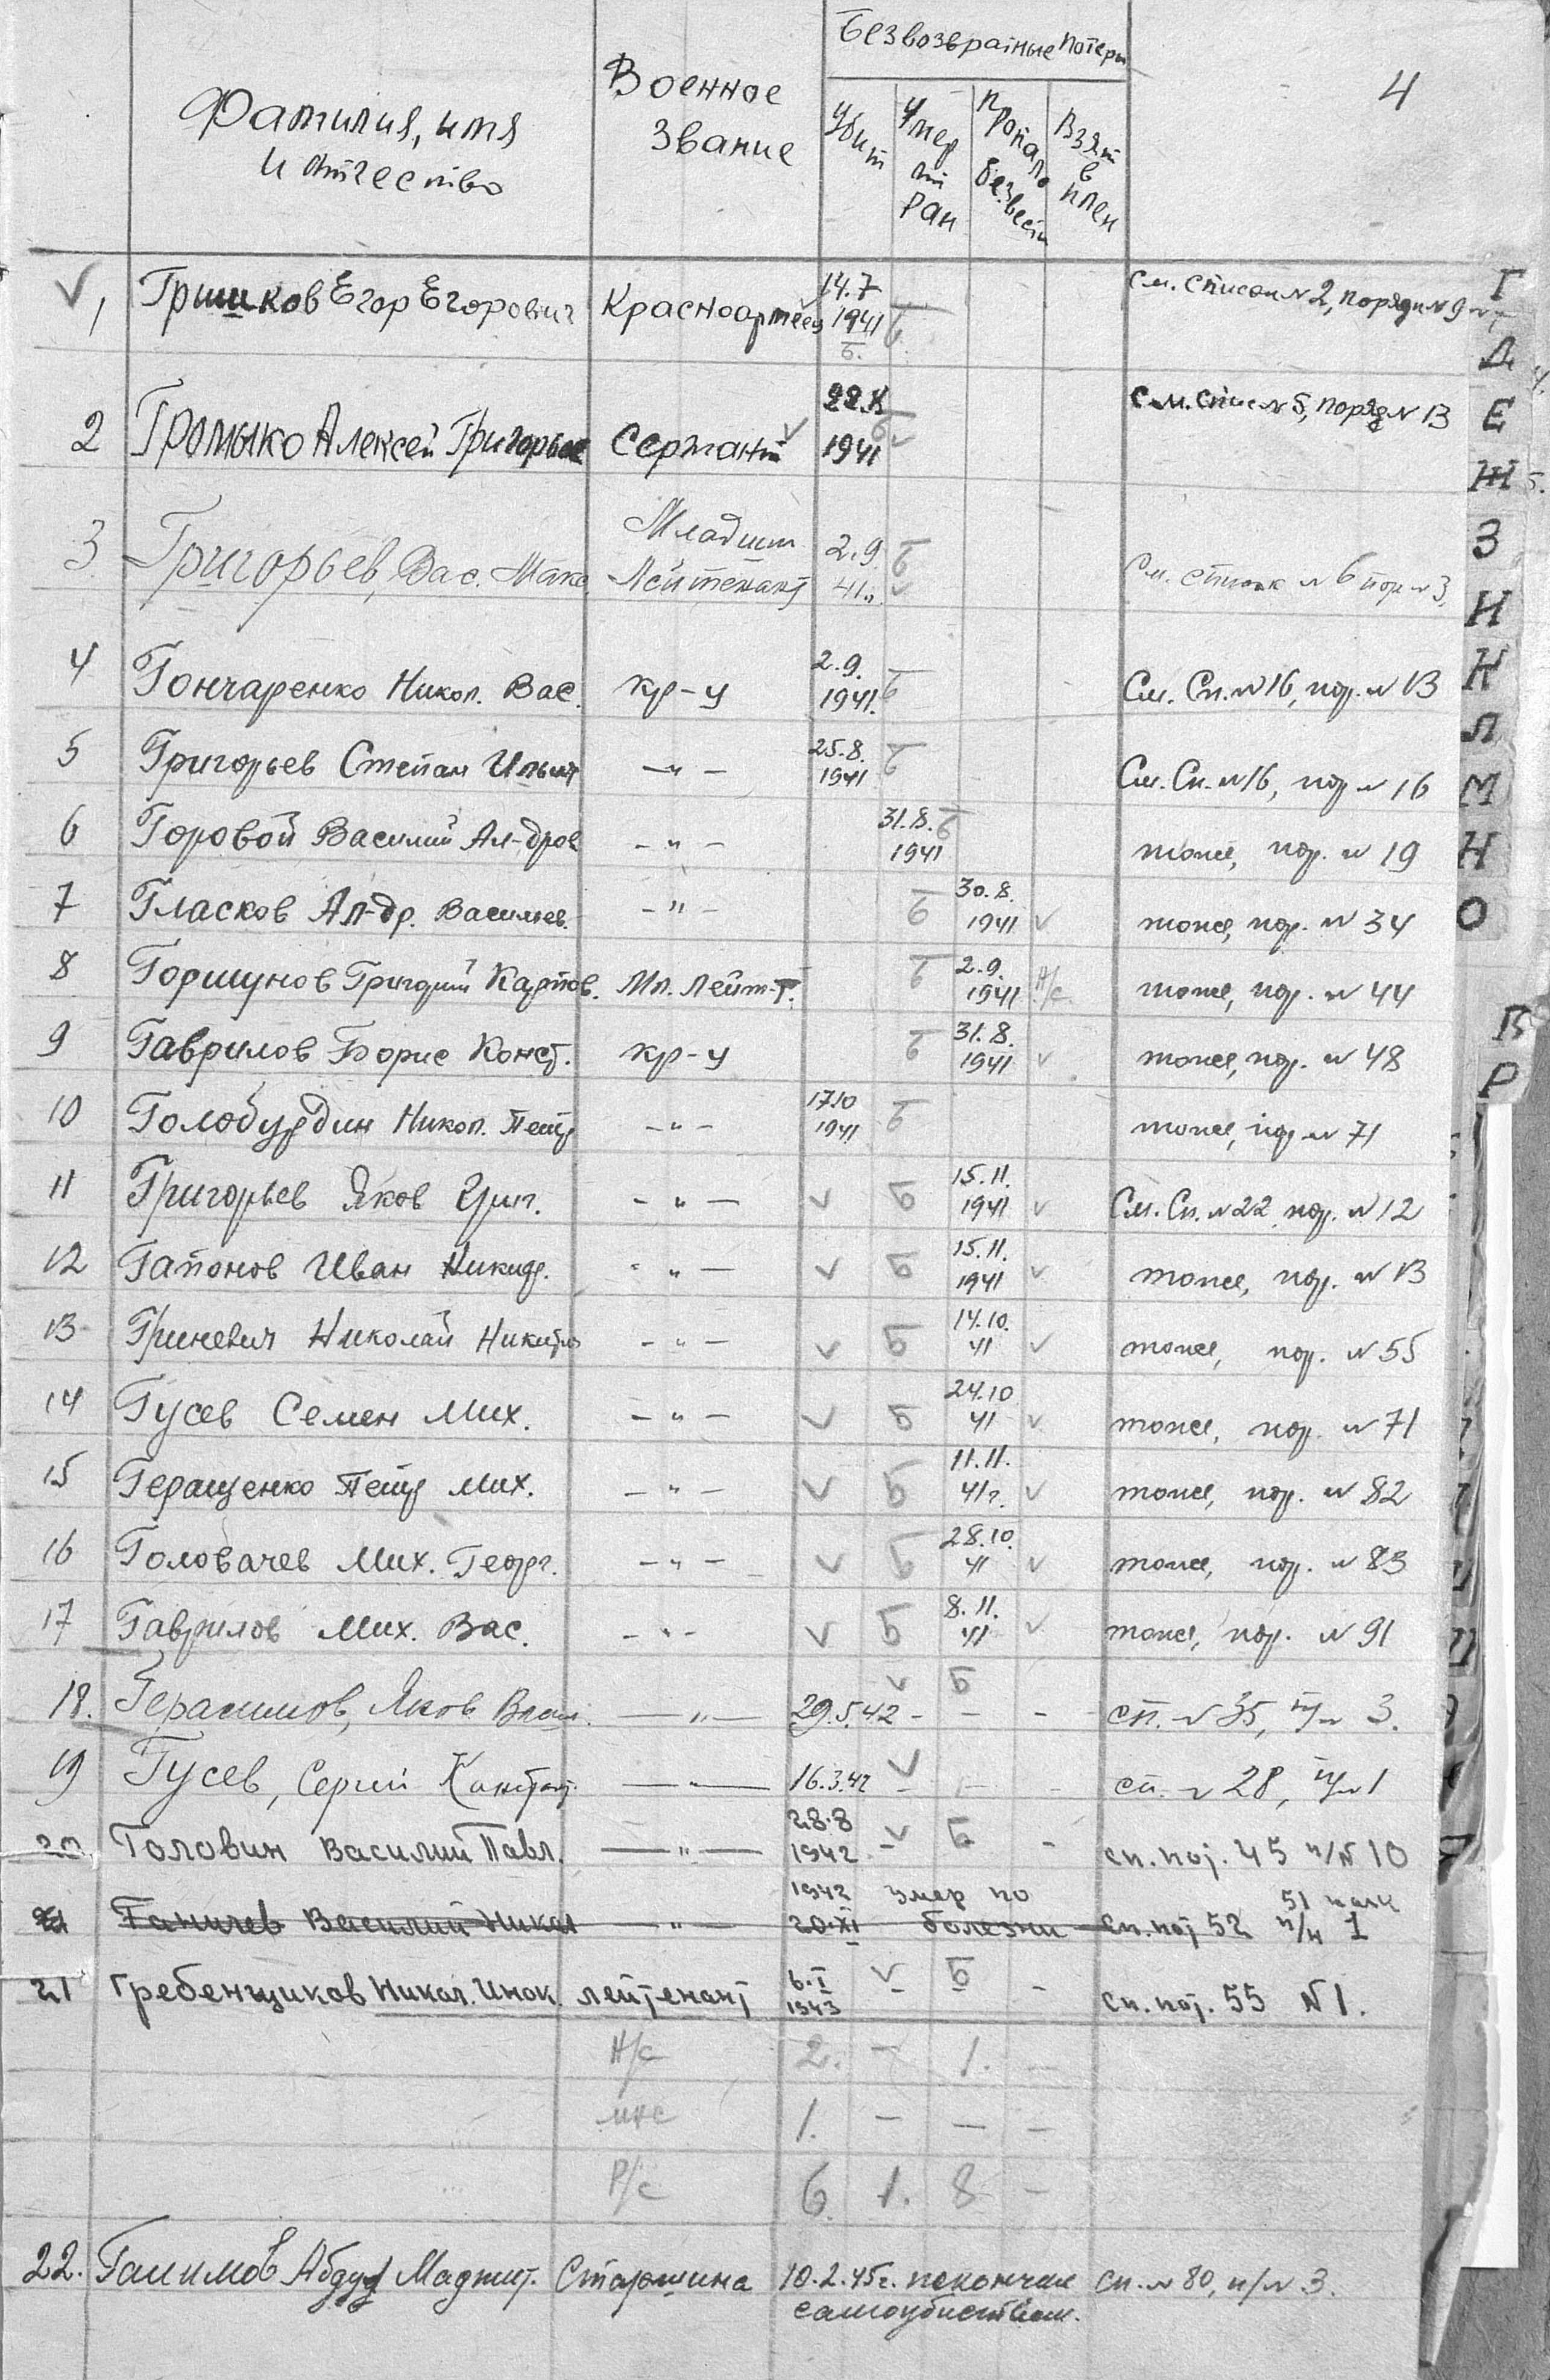 4
Фамилия, имя
и отчество
Военное
звание
Безвозвратные потери
Убит
Умер
от
ран
Пропало
без вести
Взят
в
плен
1 Гришков Егор Егорович Красноармеец 14.7 1941 Б. Б см. список № 2, порядк № 9
2 Громыко Алексей Григорьев Сержант 1941 Б см. список № 5, поряд № 13
3 Григорьев, Вас. Макс. Младший Лейтенант 2.9. 41г. Б См. список № 6 пор № 3.
4 Гончаренко Никол. Вас. кр-ц 2.9. 1941. Б См. Сп. № 16, пор. № 13
5 Григорьев Степан Ильич — " — 25.8. 1941 Б См. Сп. № 16, пор № 16
6 Горовой Василий Ал-дров — " — 31.8. 1941 Б тоже, пор. № 19
7 Гласков Ал-др. Васильев. — " — Б 30.8. 1941 тоже, пор. № 34
8 Горшунов Григорий Карпов. Мл. Лейт-т. Б 2.9. 1941 Н/с. тоже, пор. № 44
9 Гаврилов Борис Конст. кр-ц Б 31.8. 1941 тоже, пор. № 48
10 Голобурдин Никол. Петр — " — 17.10 1941 Б тоже, пор № 71
11 Григорьев Яков Григ. — " — Б 15.11. 1941 См. Сп. № 22 пор. № 12
12 Гапонов Иван Никиф. — " — Б 15.11. 1941 тоже, пор. № 13
13 Гриневич Николай Никит — " — Б 14.10. 41 тоже, пор. № 55
14 Гусев Семен Мих. — " — Б 24.10 41 тоже, пор. № 71
15 Геращенко Петр Мих. — " — Б 11.11. 41г. тоже, пор. № 82
16 Головачев Мих. Георг. — " — Б 28.10. 41 тоже, пор. № 83
17 Гаврилов Мих. Вас. — " — Б 8.11. 41 тоже, пор. № 91
18. Герасимов, Яков — " — 29.5.42 - Б - - сп. № 35, п/№ 3.
19 Гусев, Сергей — " — 16.3.42 - - - сп. № 28, п/№ 1
20 Головин Василий Павл. — " — 28.8 1942 - Б - сп. пот. 45 п/№ 10
21 Ганичев Василий Никол — " — 1942 20.XI умер по болезни сп. пот 52 п/н 1
21 Гребенщиков Никол. Инок. лейтенант 6.I 1943 - Б - сп. пот. 55 № 1.
Н/с 2. — 1. —
мнс 1. — — —
Р/с 6. 1. 8 —
22. Галимов Абдул Маджит. Старшина 10.2.45г. покончил сп. № 80, п/№ 3.
самоубийством.
Г
Д
Е
Ж
З
И
К
Л
М
Н
О
В
Р